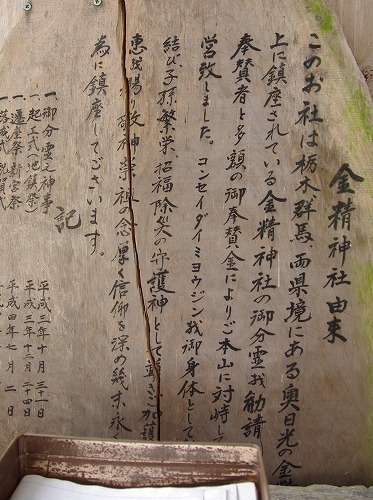 金精神社由来
このお社は栃木群馬両県境にある奥日光の金
上に鎮座されている金精神社の御分霊を勧請
奉賛者と多額の御奉賛金によりご本山に対峙し
営致しました。コンセイダイミョウジンを御身体として
結び子孫繁栄招福除災の守護神として
恵を賜り敬神崇祖の念厚く信仰を深め幾末永く
為に鎮座してございます。
記
一御分霊之神事 平成三年十月三十一日
一起工式(地鎮祭) 平成三年十二月二十四日
一遷座祭新宮祭 平成四年七月二日
一落成式祝賀式